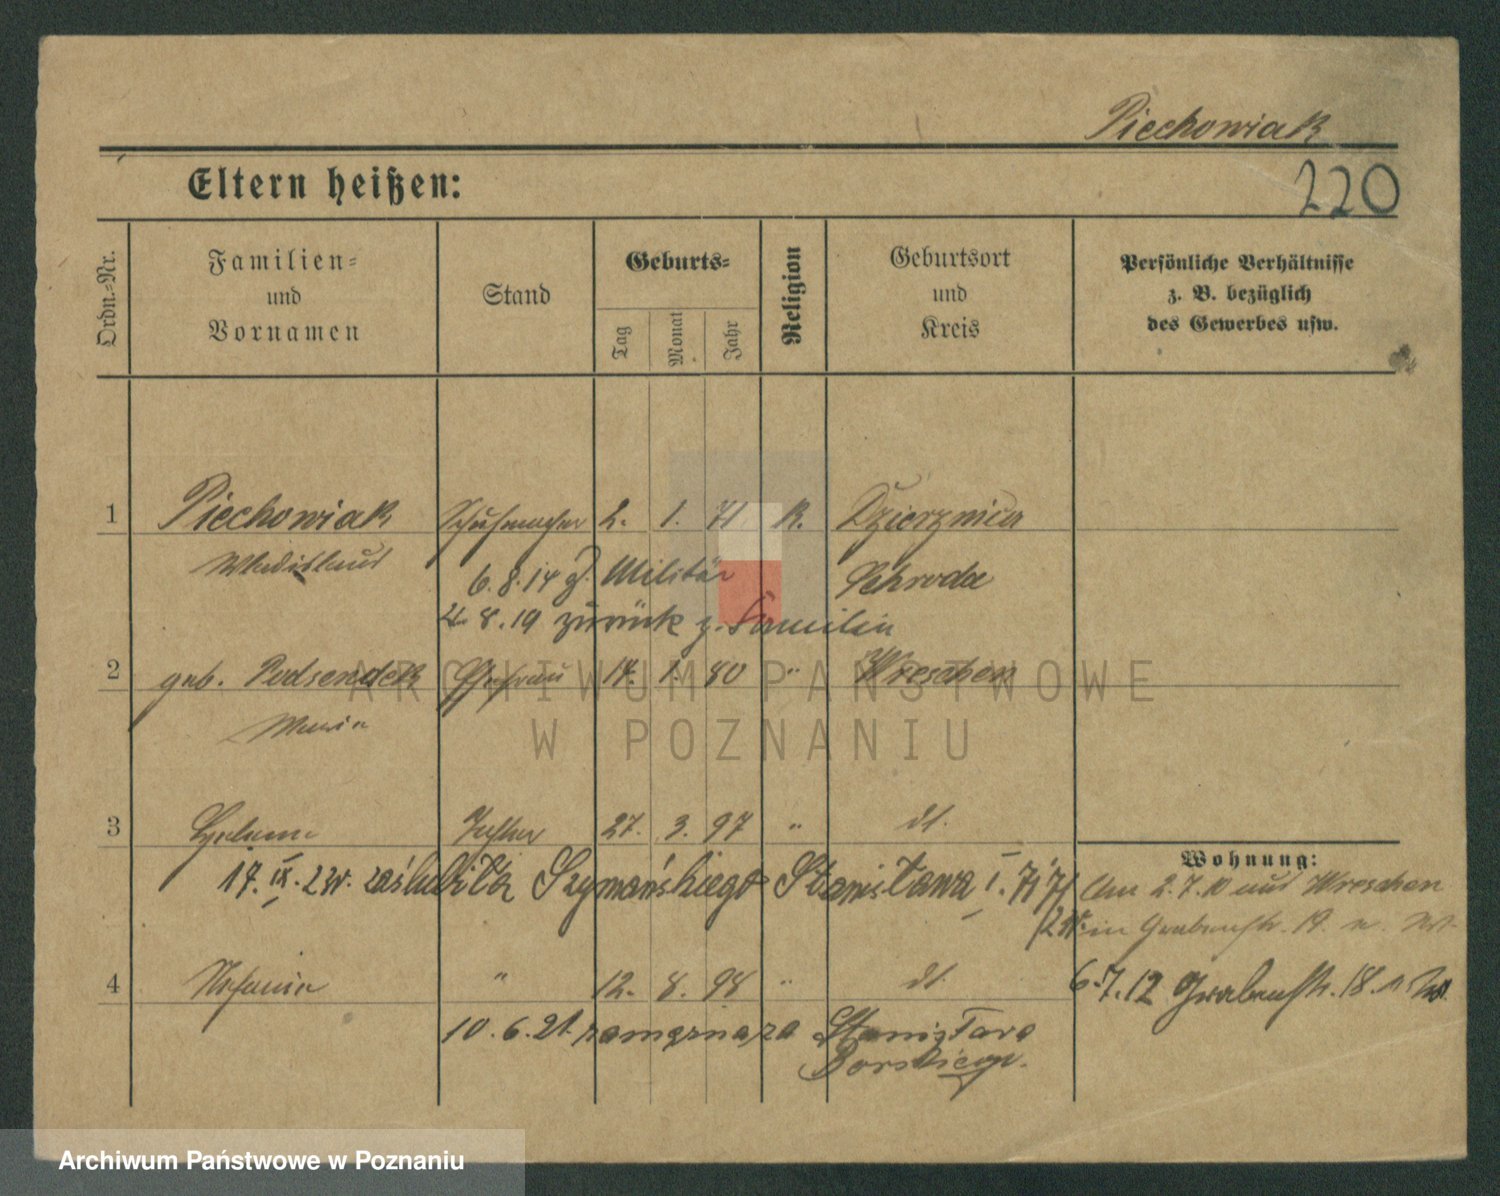 Piechowiak
Eltern heißen:
220
Ordn.-Nr.
Familien-
und
Vornamen
Stand
Geburts-
Tag
Monat
Jahr
Religion
Geburtsort
und
Kreis
Persönliche Verhältnisse
z. B. bezüglich
des Gewerbes usw.
1 Piechowiak Schuhmacher 2. 1. 71 K. Dzierznica
Wladislaus
6.8.14 z. Militär Schroda
4.8.19 zurück z. Familie
2 geb. Podsendek Ehefrau 14. 1. 80 " Wreschen
Maria
ARCHIWUM PAŃSTWOWE
W POZNANIU
3 Helene Tochter 27. 3. 97 " dt.
17. IX. 23r. zaślubiła Szymańskiego Stanisława
Wohnung:
Am 2.7.10 aus Wreschen
in Grabenstr. 19. n. W.
4 Stefanie " 12. 8. 98 " dt.
6.7.12 Grabenstr. 18.
10.6.21. zamężna za Stanisława
Borskiego.
Archiwum Państwowe w Poznaniu